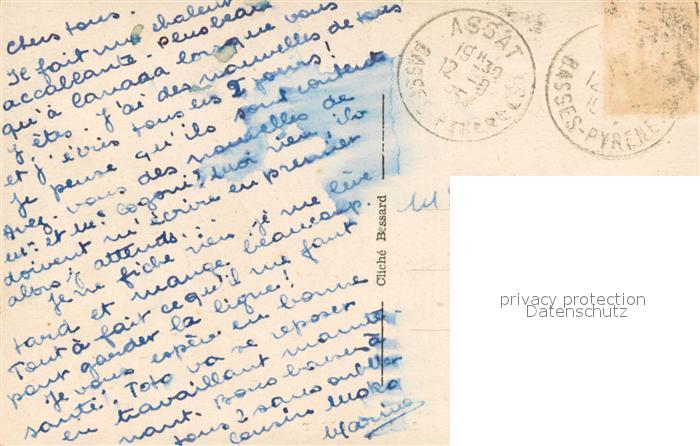 Chers tous.
Il fait une chaleur
accablante. Plus beau
qu'à Canada lorsque vous
y êtes. J'ai des nouvelles de tous
et j'écris tous les 2 jours!
Je pense qu'ils sont contents
Avez-vous des nouvelles de
Mr et Me Cogoni? Moi rien, ils
doivent m'écrire en premier
alors j'attends...
Je ne fiche rien, je me lève
tard et mange beaucoup.
Tout à fait ce qu'il me faut
pour garder la ligne!
Je vous espère en bonne
santé, Toto va se reposer
en travaillant mainte-
nant. Bons baisers à
tous 2 sans oublier
cousins
ASSAT
BASSES-PYRENEES
19H30
12
BASSES-PYRENE
12
Cliché Bessard
privacy protection
Datenschutz